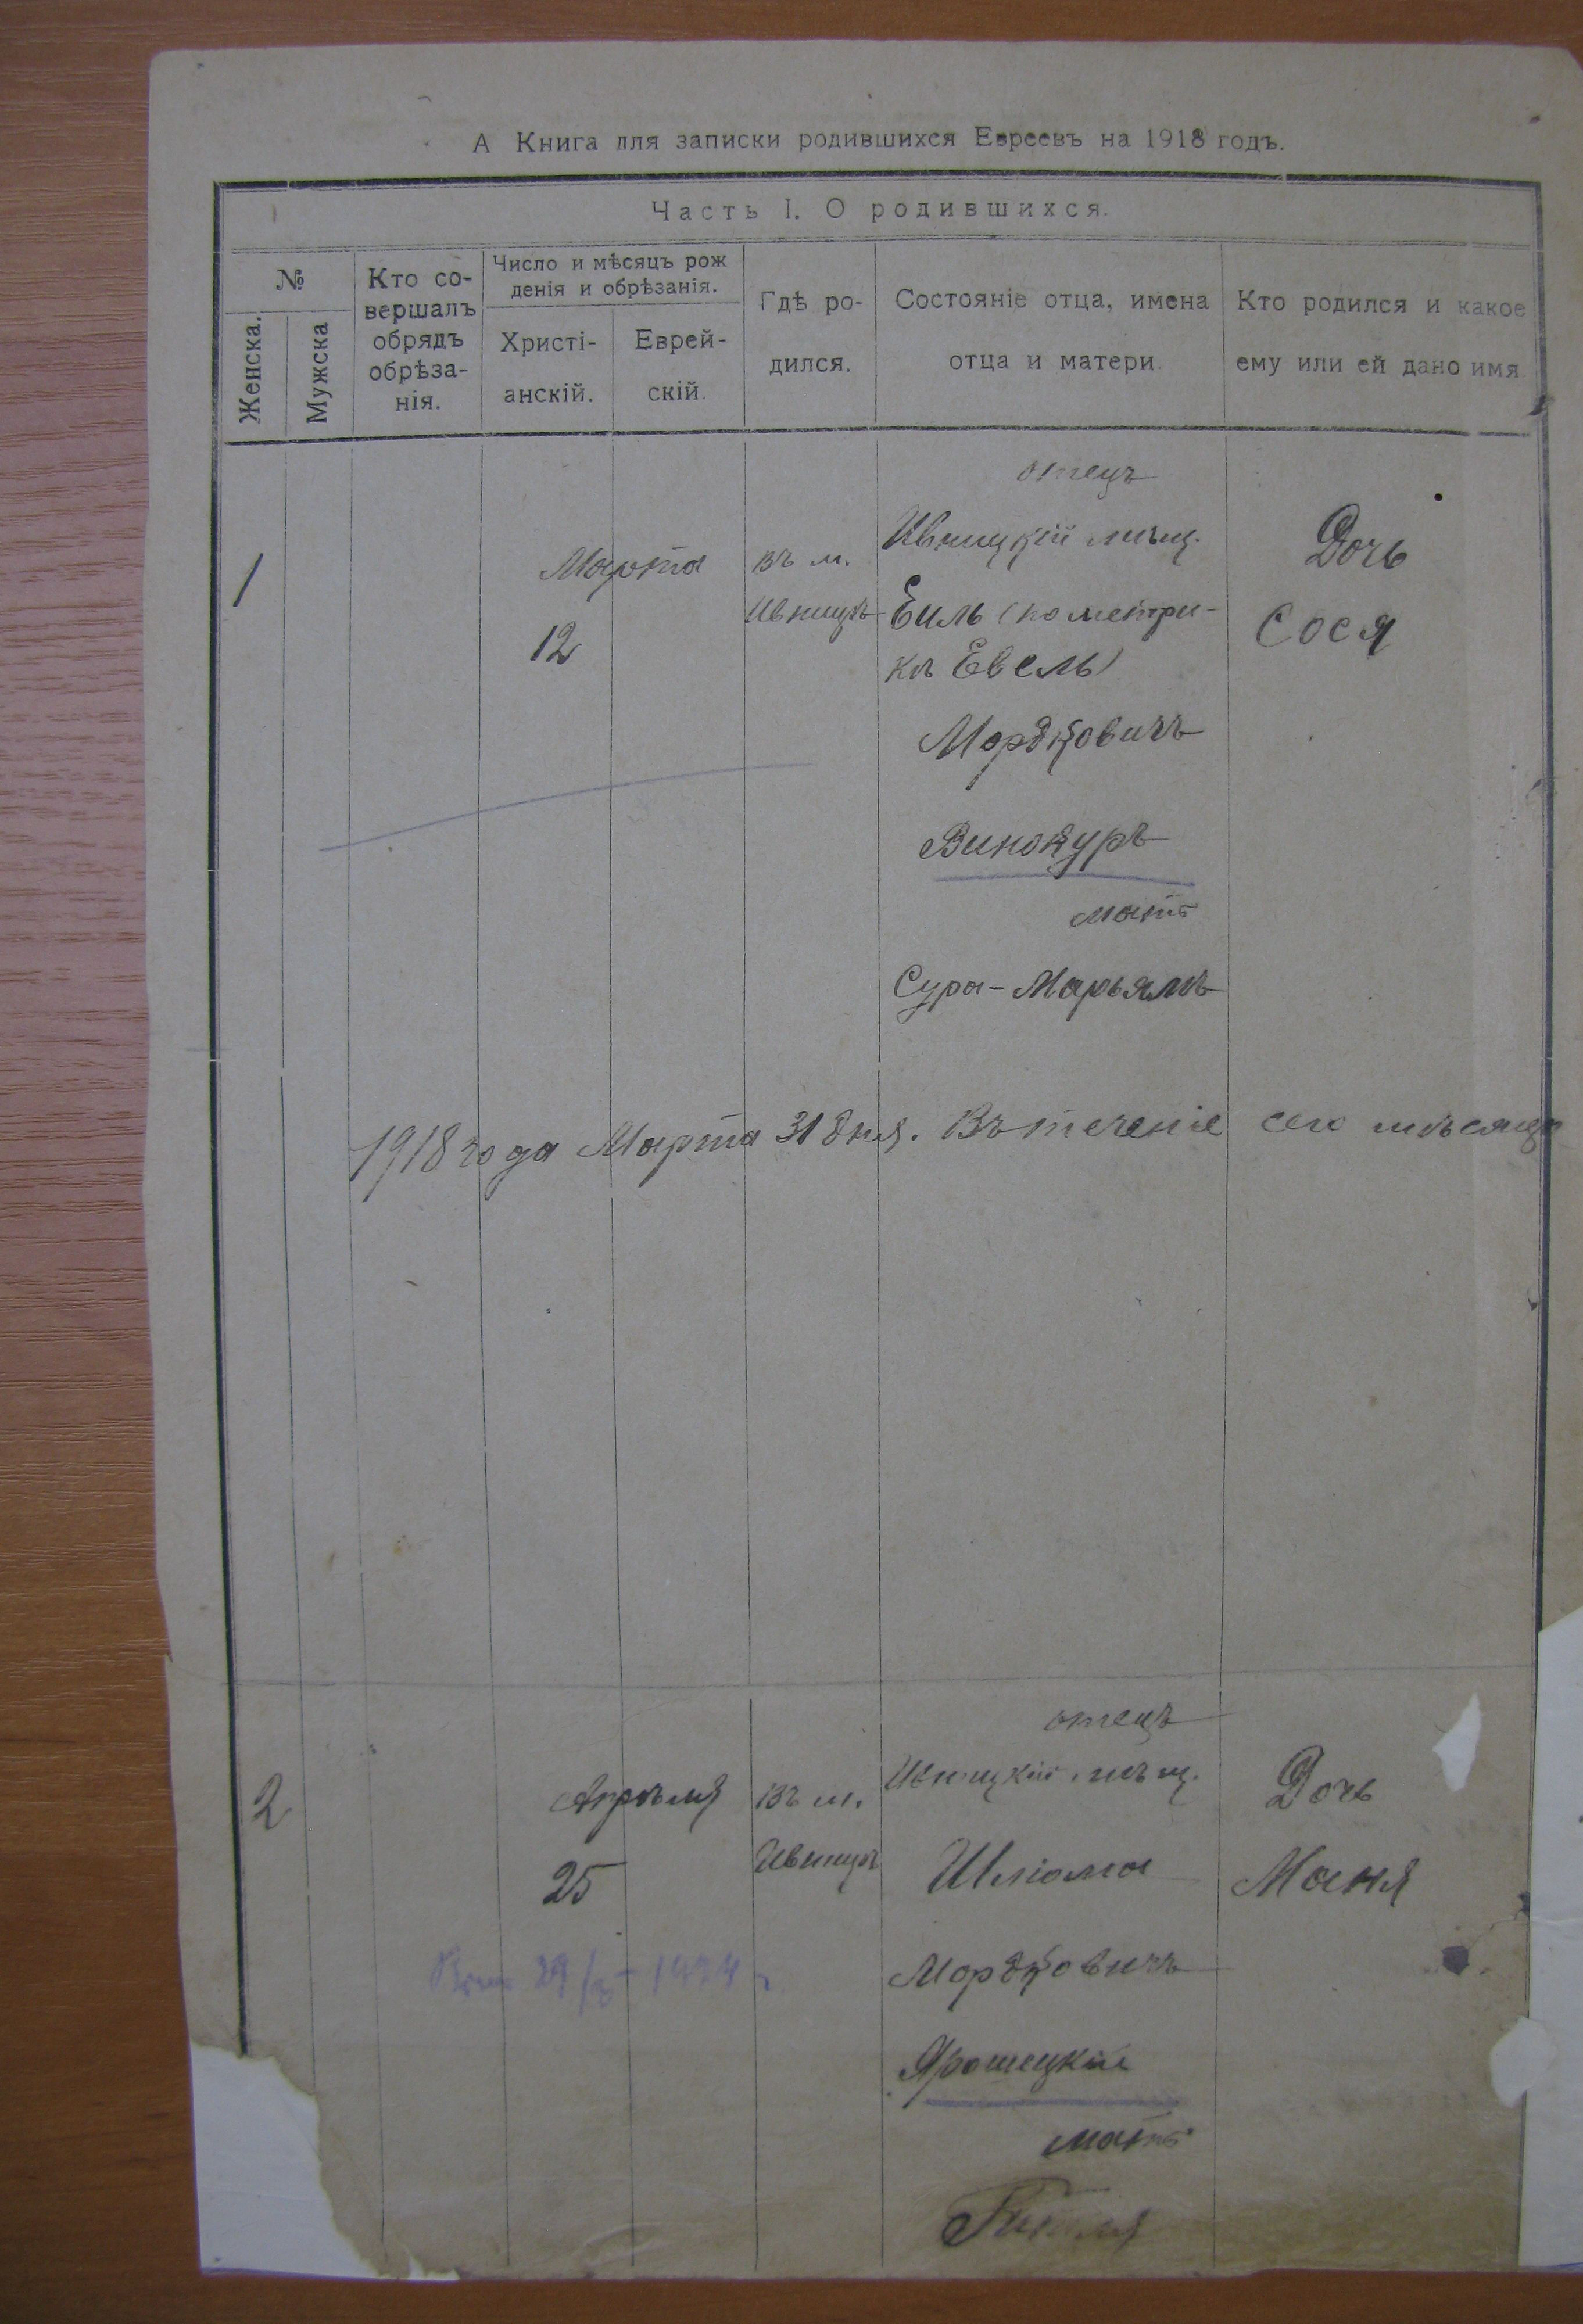 А Книга для записки родившихся Евреевъ на 1918 годъ.
Часть I. О родившихся.
№
Женска.
Мужска
Кто со-
вершалъ
обрядъ
обрѣза-
нія.
Число и мѣсяцъ рож
денія и обрѣзанія.
Христі-
анскій.
Еврей-
скій.
Гдѣ ро-
дился.
Состояніе отца, имена
отца и матери.
Кто родился и какое
ему или ей дано имя.
1
Марта
12
въ м.
Ивницѣ
отецъ
Ивницкій мѣщ.
Еиль (по метри-
кѣ Евель)
Мордковичъ
Винокуръ
мать
Сура-Марьямъ
Дочь
Сося
1918 года Марта 31 дня. Въ теченіе сего мѣсяца
2
Апрѣля
25
въ м.
Ивницѣ
отецъ
Ивницкій мѣщ.
Шліома
Мордковичъ
Ярошецкій
мать
Гителя
Дочь
Маня